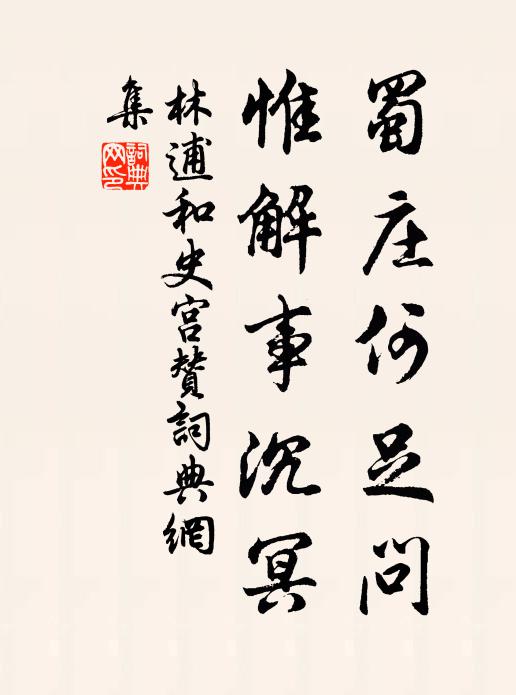 蜀庄何足问
惟解事沉冥
林逋和史宫赞詞典網
集
詞典
网印